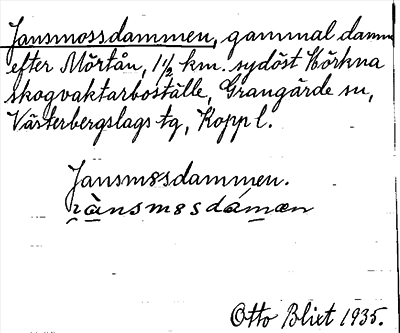 Jansmossdammen, gammal damm
efter Mörtån, 1 1/2 km. sydöst Hörkna
skogvaktarboställe, Grangärde sn,
Västerbergslags tg, Koppl.
Jansmossdammen.
Otto Blixt 1935.